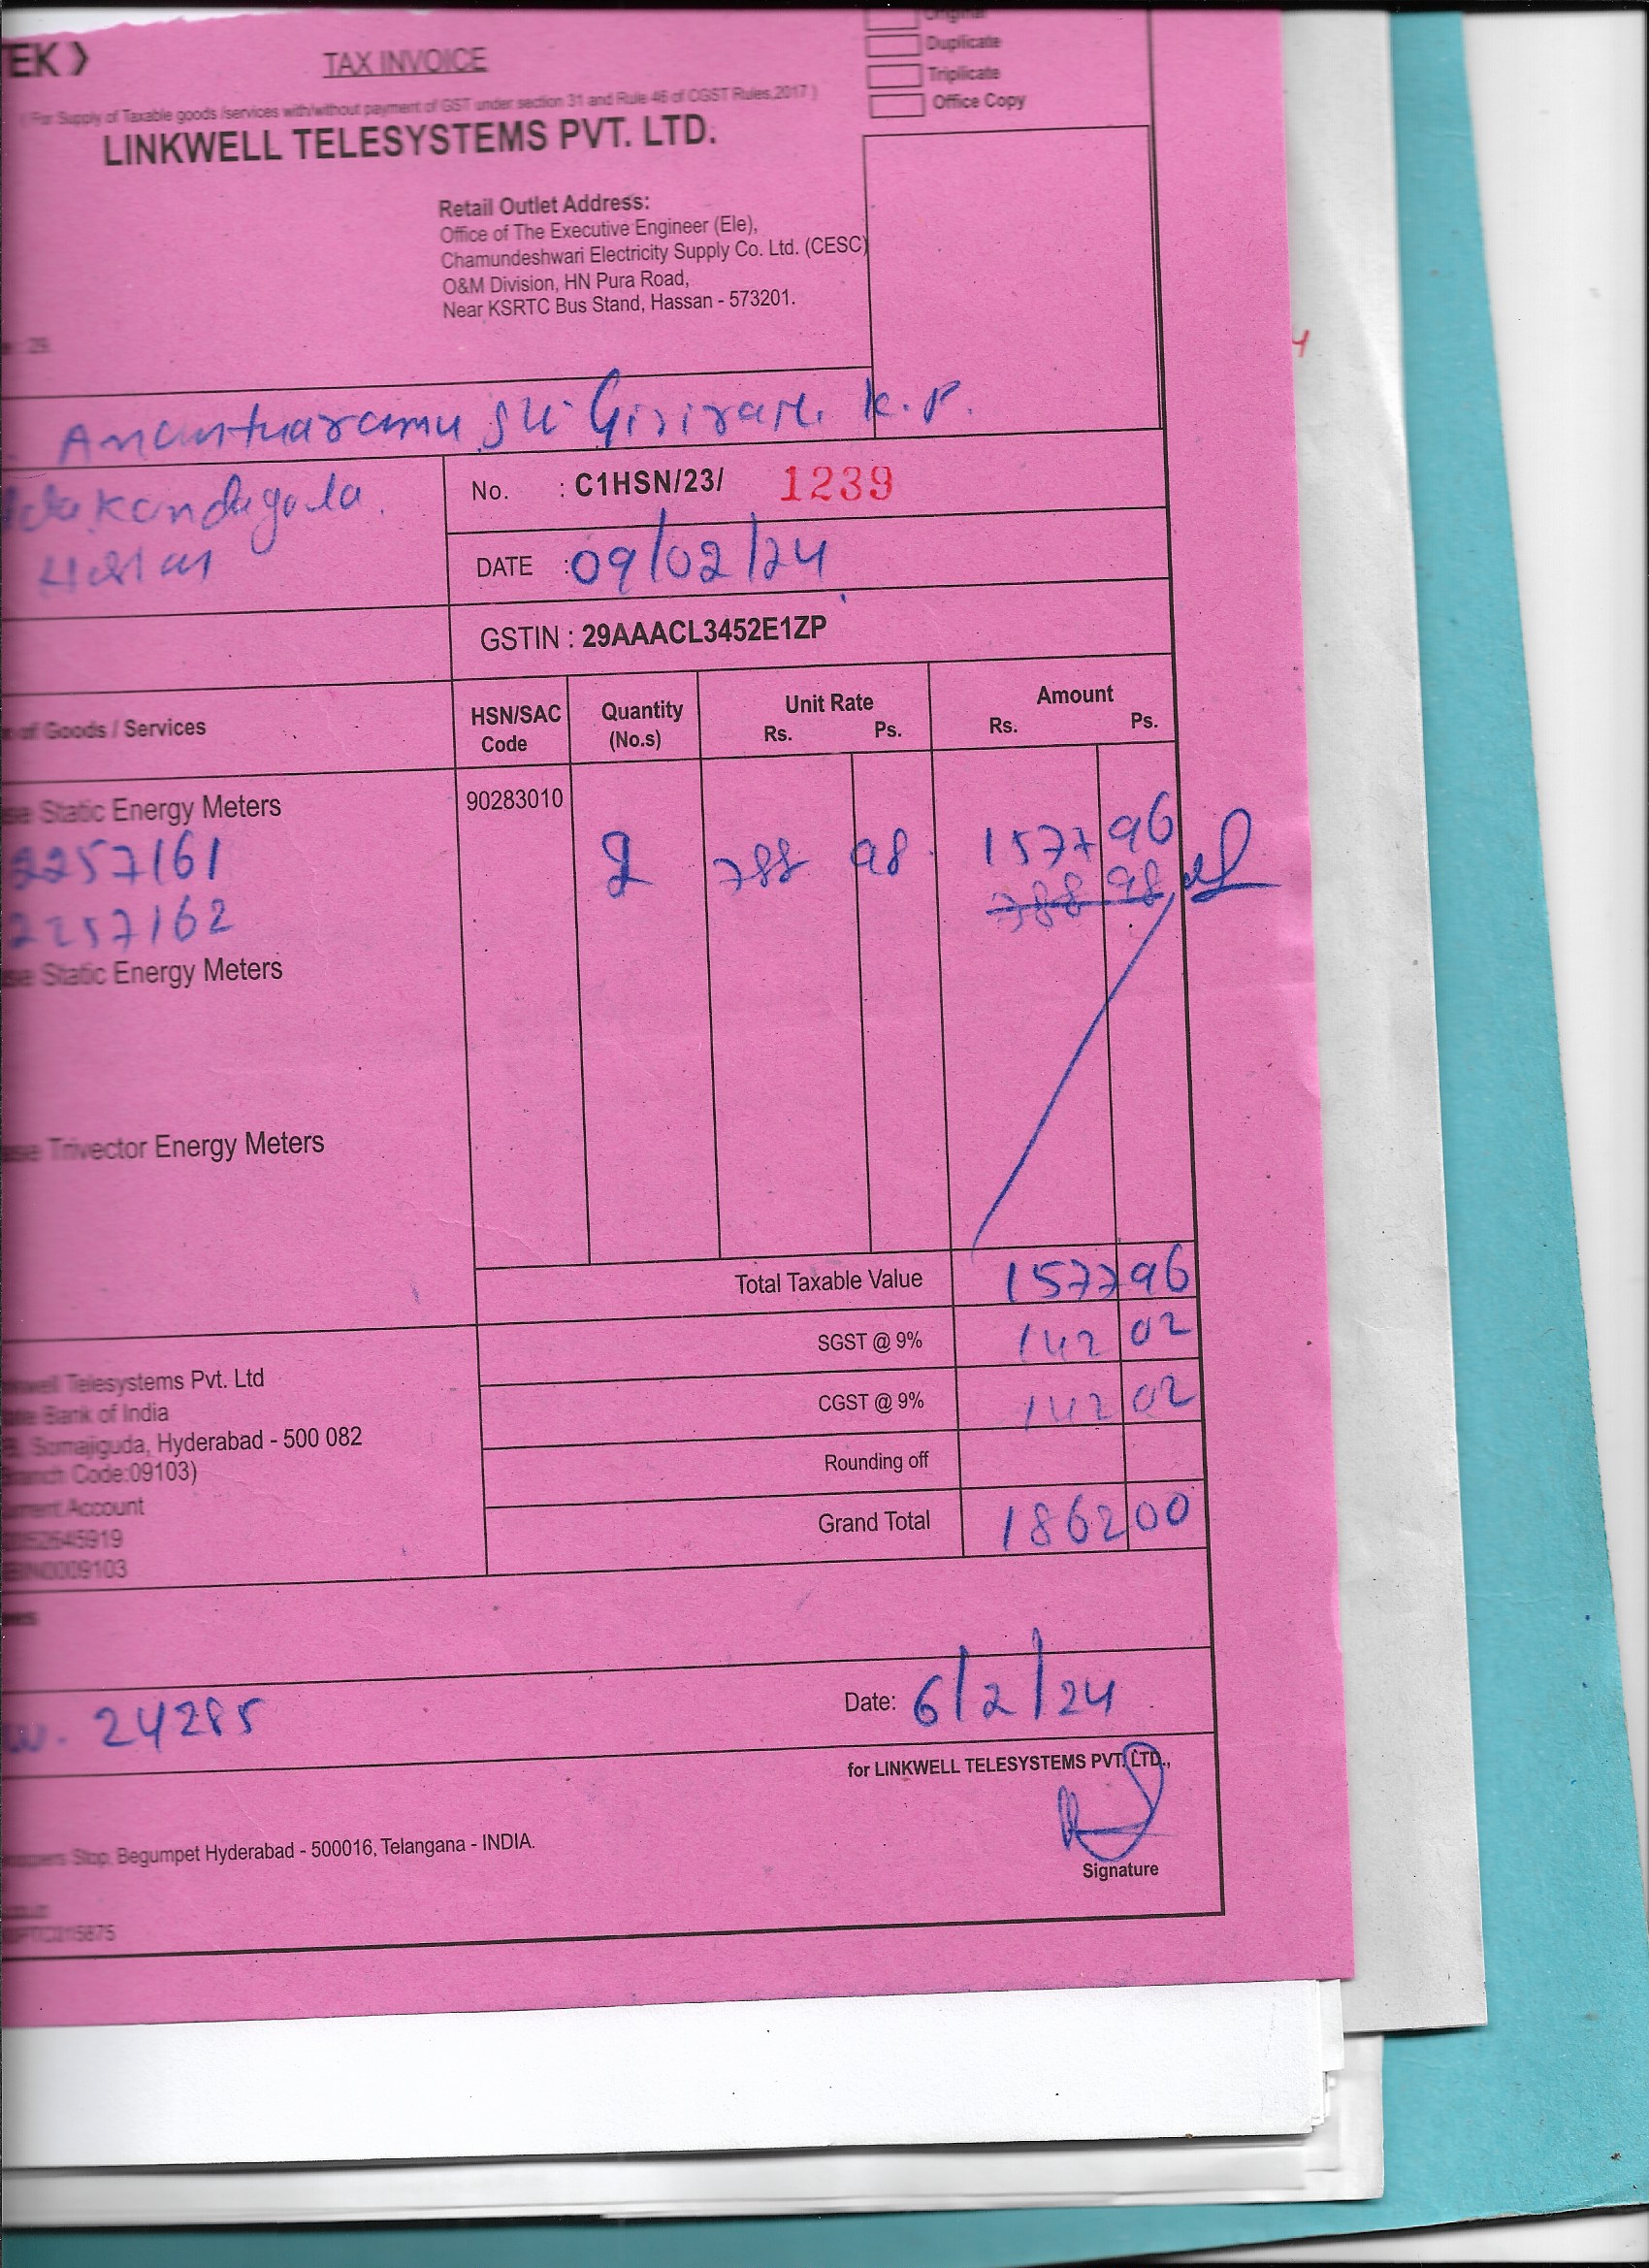 EK
TAX INVOICE
Original
Duplicate
Triplicate
Office Copy
( For Supply of Taxable goods /services with/without payment of GST under section 31 and Rule 46 of CGST Rules,2017 )
LINKWELL TELESYSTEMS PVT. LTD.
Retail Outlet Address:
Office of The Executive Engineer (Ele),
Chamundeshwari Electricity Supply Co. Ltd. (CESC)
O&M Division, HN Pura Road,
Near KSRTC Bus Stand, Hassan - 573201.
: 29
K.P.
No. : C1HSN/23/ 1239
DATE : 09/02/24
GSTIN : 29AAACL3452E1ZP
of Goods / Services HSN/SAC Code Quantity (No.s) Unit Rate Rs. Ps. Amount Rs. Ps.
Static Energy Meters 90283010
2257161 2 788 98 1577 96
2257162 788 98
Static Energy Meters
Trivector Energy Meters
Total Taxable Value 1577 96
SGST @ 9% 142 02
CGST @ 9% 142 02
Rounding off
Grand Total 1862 00
Telesystems Pvt. Ltd
Bank of India
Somajiguda, Hyderabad - 500 082
Code:09103)
Account
2645919
0009103
24285 Date: 6/2/24
for LINKWELL TELESYSTEMS PVT. LTD.,
Stop, Begumpet Hyderabad - 500016, Telangana - INDIA.
Signature